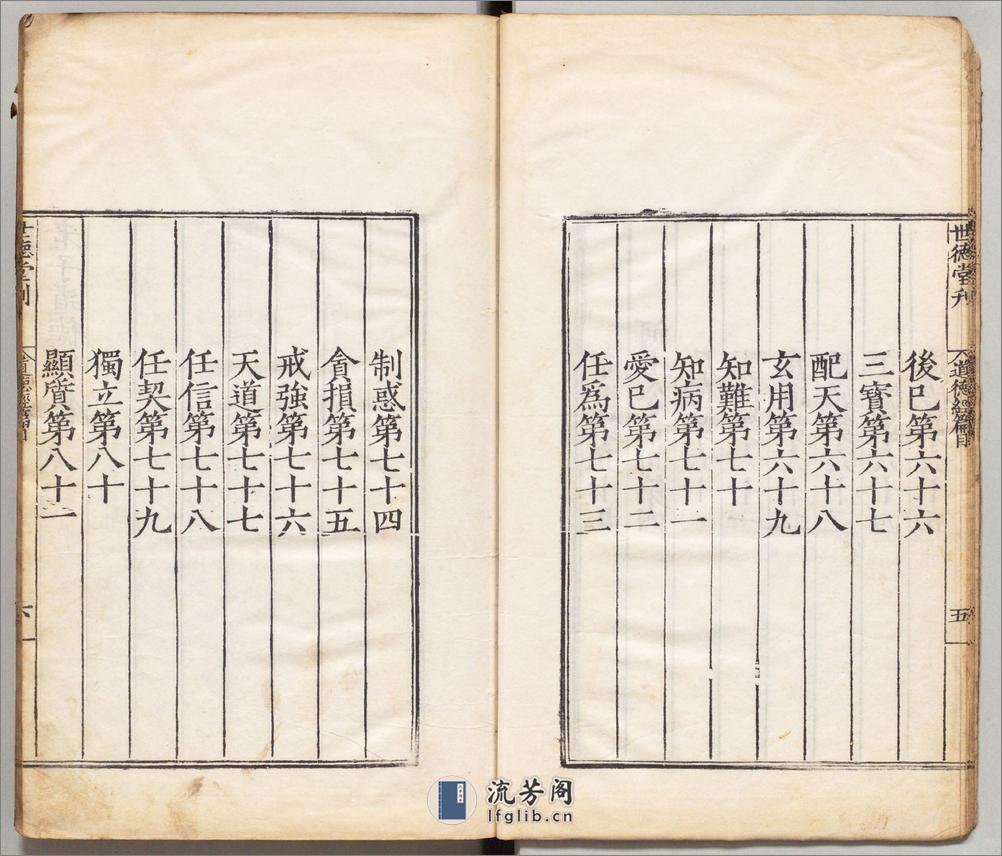 世德堂刊
道德經篇目
五
後已第六十六
三寶第六十七
配天第六十八
玄用第六十九
知難第七十
知病第七十一
愛已第七十二
任爲第七十三
制惑第七十四
貪損第七十五
戒強第七十六
天道第七十七
任信第七十八
任契第七十九
獨立第八十
顯質第八十一
世德堂刊
六
流芳阁
lfglib.cn